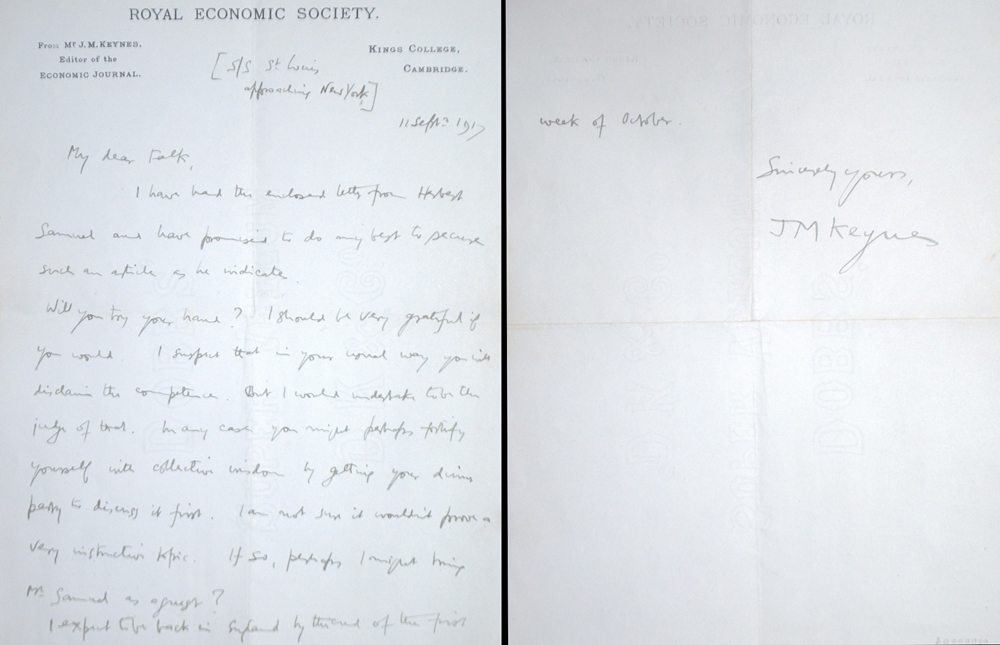 ROYAL ECONOMIC SOCIETY.
From Mr J.M. KEYNES,
Editor of the
ECONOMIC JOURNAL.
KINGS COLLEGE,
CAMBRIDGE.
[S/S St Louis
approaching New York]
11 Sept. 1917
My dear Falk,
I have had the enclosed letter from Herbert
Samuel and have promised to do my best to secure
such an article as he indicates.
Will you try your hand? I should be very grateful if
you would. I suspect that in your usual way you will
disclaim the competence. But I would undertake to be the
judge of that. In any case you might perhaps fortify
yourself with collective wisdom by getting your dining
party to discuss it first. I am not sure it wouldn't prove a
very instructive topic. If so, perhaps I might bring
Mr Samuel as a guest?
I expect to be back in England by the end of the first
week of October.
Sincerely yours,
JM Keynes